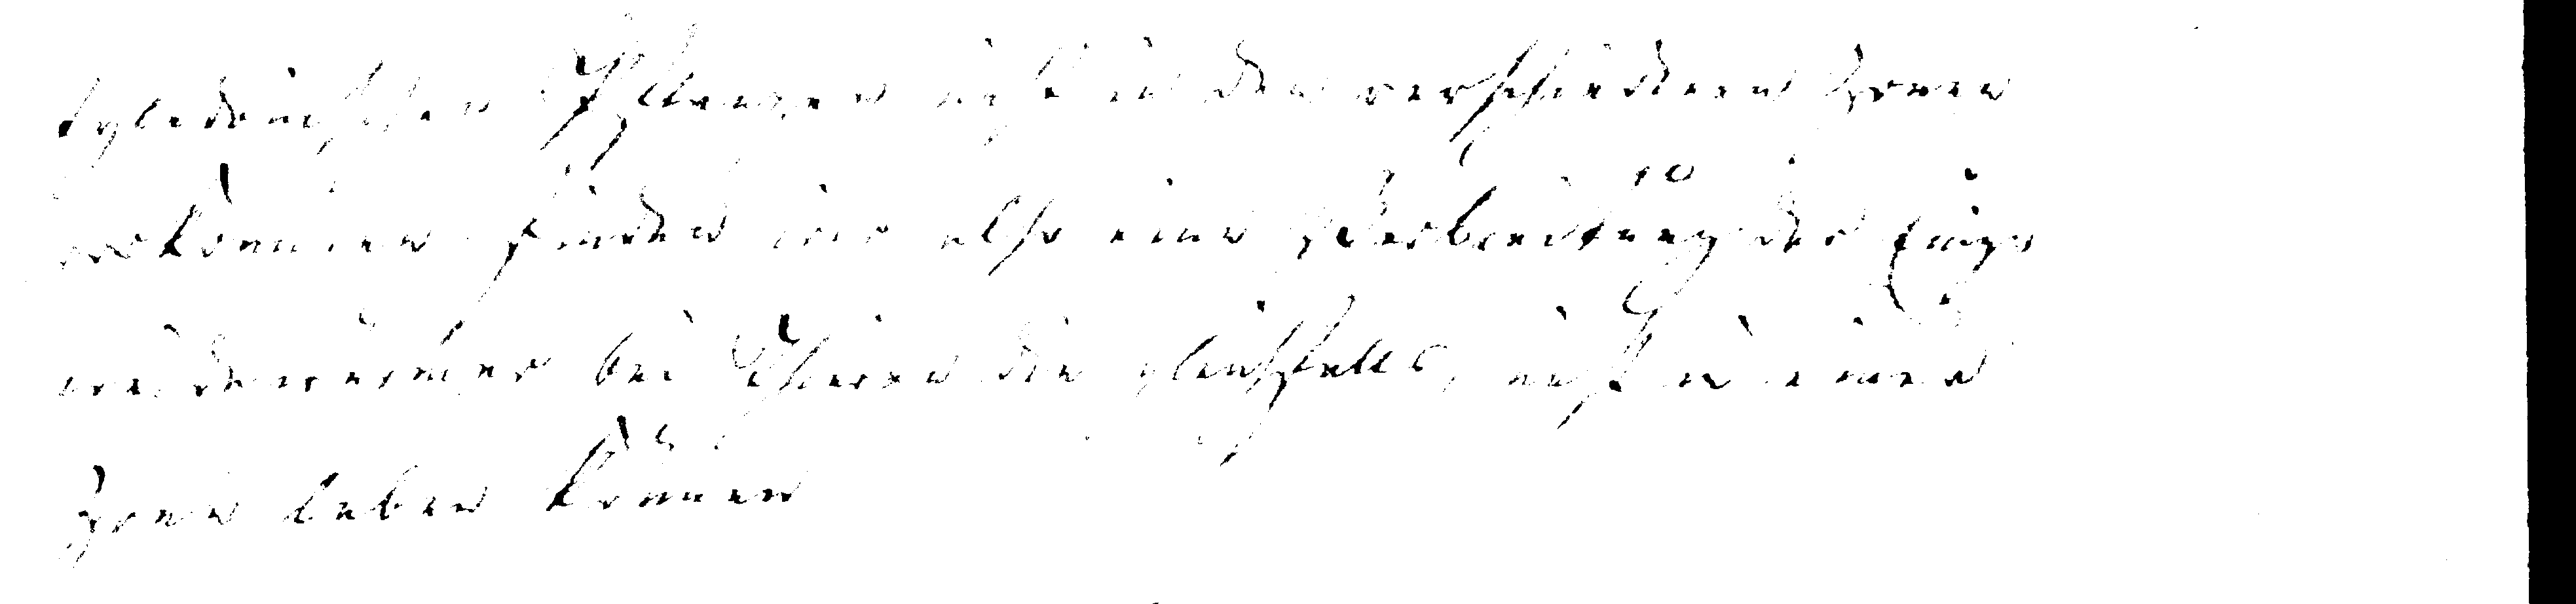 tyledonischen Pflanzen nicht in den verschiedenen Zonen
vorkommen finden wir also eine Verbreitung der Einge
weidewürmer bei Thieren die gleichfalls, nicht in einer
Zone leben können